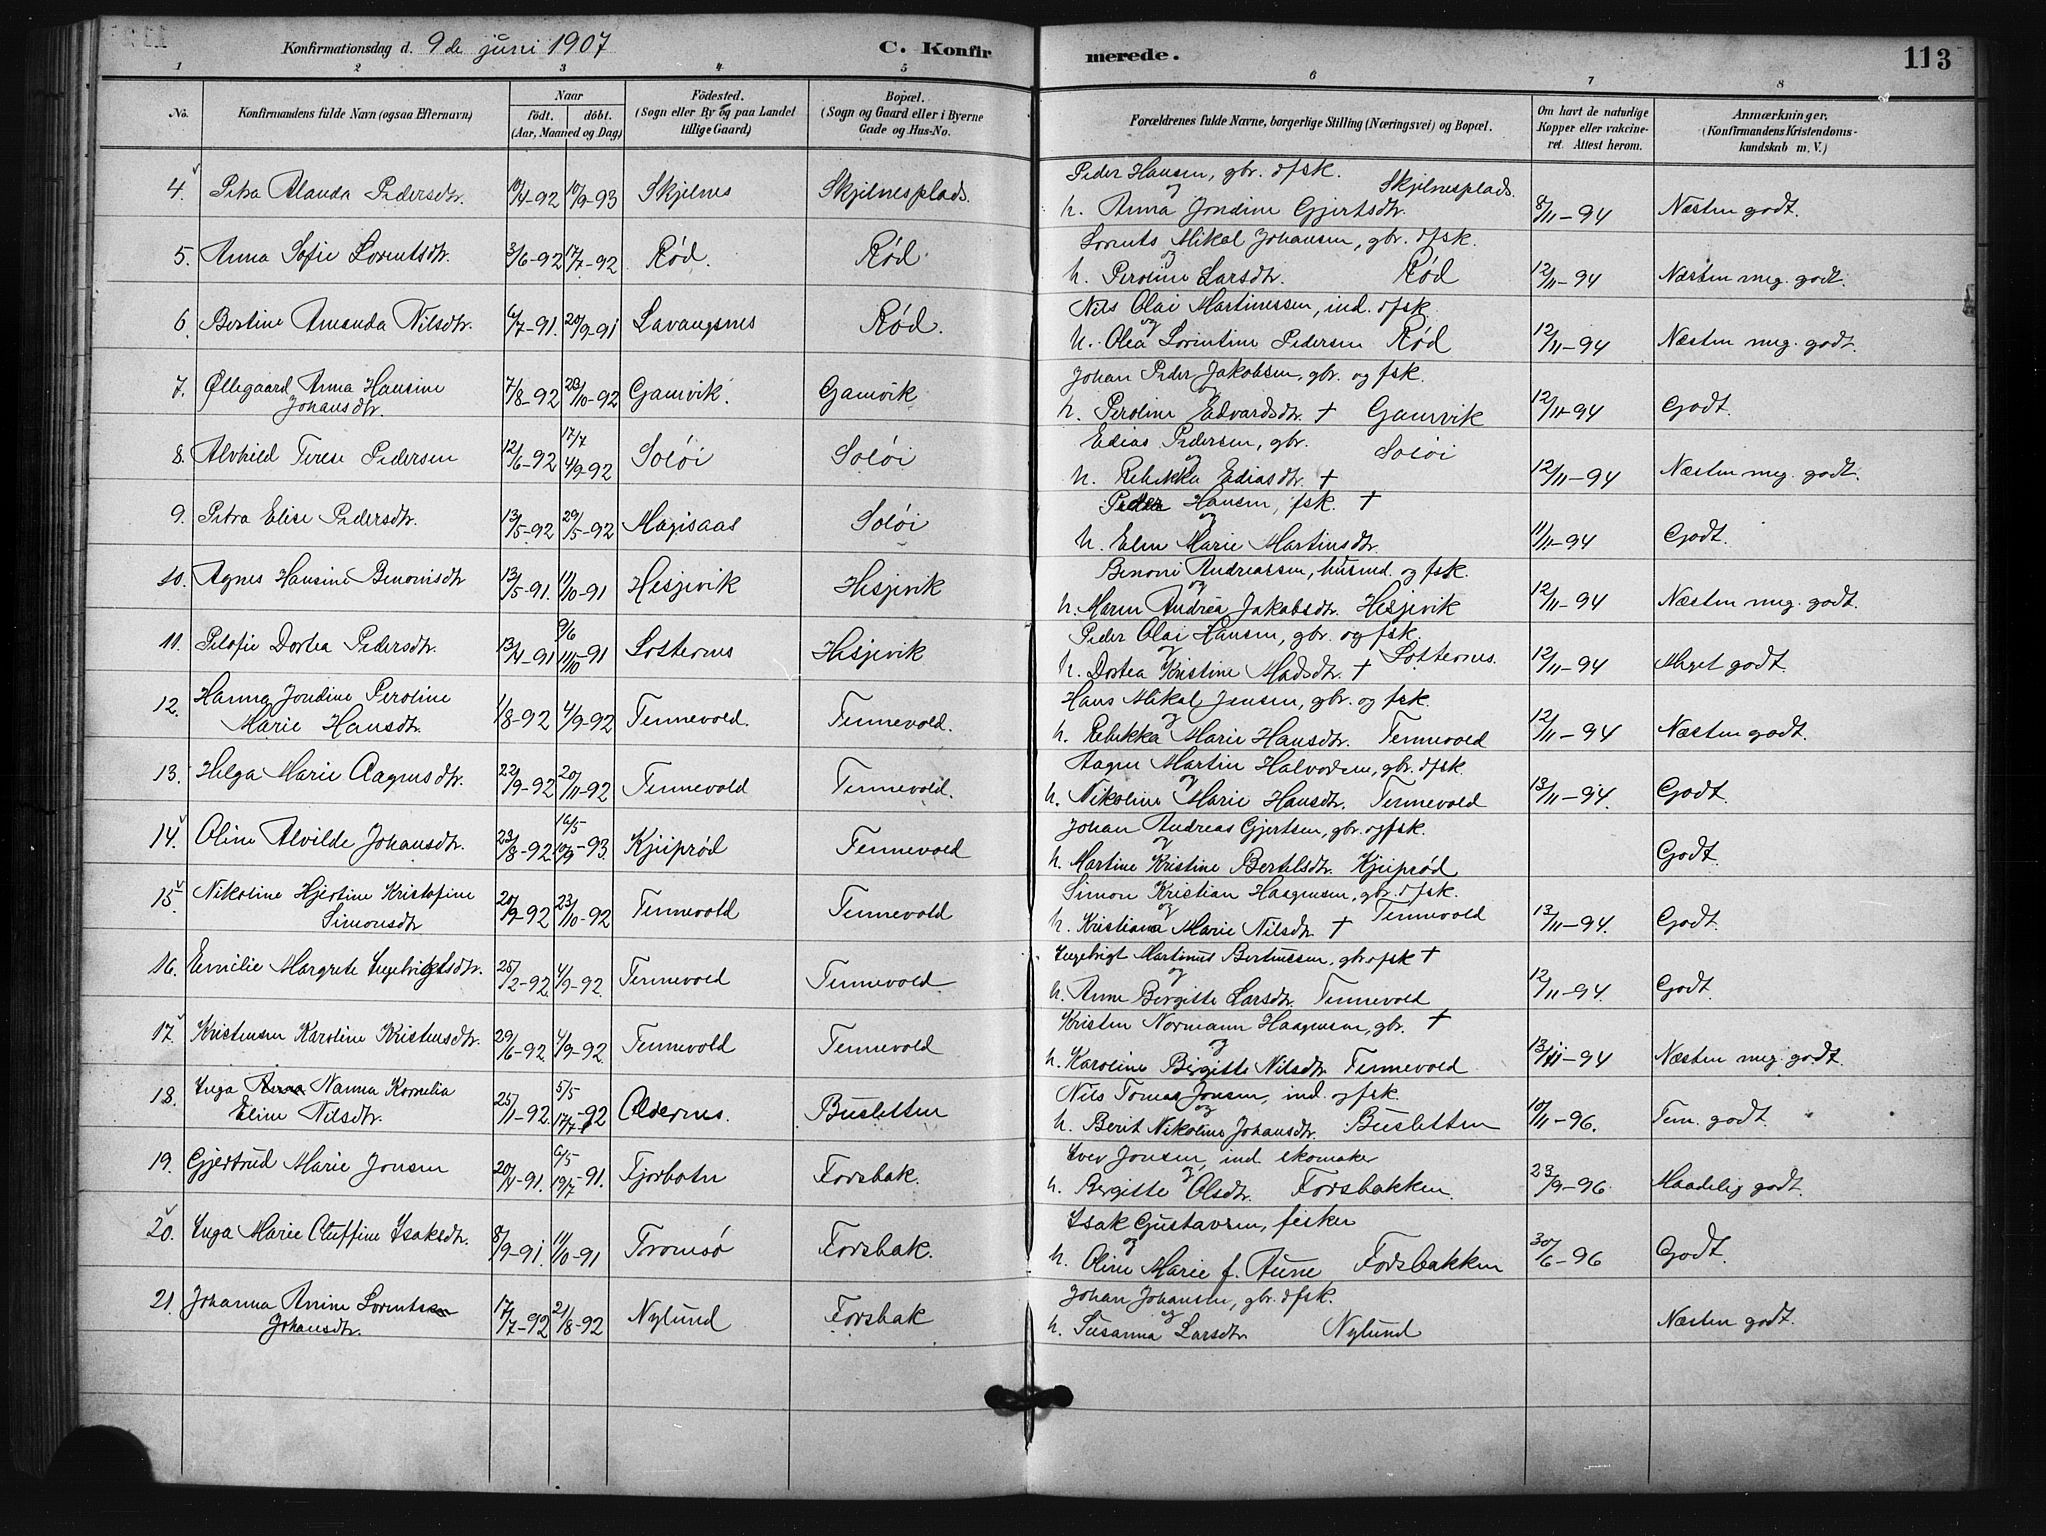 Konfirmationsdag d. 9de juni 1907 C. Konfirmerede. 113
1 2 3 4 5 6 7 8
No. Konfirmandens fulde Navn (ogsaa Efternavn) Naar født. døbt. (Aar, Maaned og Dag) Födested. (Sogn eller By og paa Landet tillige Gaard) Bopæl. (Sogn og Gaard eller i Byerne Gade og Hus-No. Forældrenes fulde Navne, borgerlige Stilling (Næringsvei) og Bopæl. Om havt de naturlige Kopper eller vakcineret. Attest herom. Anmærkninger. (Konfirmandens Kristendomskundskab m. V.)
4. Petra Alanda Pedersdtr. 10/4-92 10/9-93 Skjelnes Skjelnesplads. Peder Hansen, gbr. ofsk. Skjelnesplads.
og
h. Anna Jondine Gjertsdtr. 8/11-94 Næsten godt.
5. Anna Sofie Lorentsdtr. 3/6-92 17/7-92 Rød. Rød Lorents Mikal Johansen, gbr. ofsk.
og
h. Peroline Larsdtr. Rød 12/11-94 Næsten meg. godt.
6. Bertine Amanda Nilsdtr. 6/7-91. 20/9-91 Lavangsnes Rød. Nils Olai Martinessen, ind. ofsk.
og
h. Olea Lorentine Pedersen Rød 12/11-94 Næsten meg. godt.
7. Øllegaard Anna Hansine
Johansdtr. 7/8-92 23/10-92 Gamvik. Gamvik Johan Peder Jakobsen, gbr. og fsk.
og
h. Peroline Edvardsdtr. † Gamvik 12/11-94 Godt.
8. Alvhild Terese Pedersen 12/6-92 17/7 4/9-92 Soløi Soløi Edias Pedersen, gbr. Soløi
og
h. Rebekka Ediasdtr. † 12/11-94 Næsten meg. godt.
9. Petra Elise Pedersdtr. 13/5-92 29/5-92 Magisaas Soløi Peder Hansen, fsk. †
og
h. Elen Marie Martinsdtr. 11/11-94 Godt.
10. Agnes Hansine Benonisdtr 13/5-91. 11/10-91 Hesjevik Hesjevik Benoni Andreassen, husmd. og fsk.
og
h. Maren Andrea Jakobsdtr. Hesjevik 12/11-94 Næsten meg. godt.
11. Dortea Pedersdtr. 13/4-91 9/6 11/10-91 Lotternes Hesjevik Peder Olai Hansen, gbr. og fsk.
og
h. Dortea Kristine Madsdtr. † Lotternes. 12/11-94 Meget godt.
12. Hanna Jondine Peroline
Marie Hansdtr. 1/8-92 4/9-92 Tennevold. Tennevold. Hans Mikal Jensen, gbr. og fsk.
og
h. Rebekka Marie Hansdtr. Tennevold 12/11-94 Næsten godt.
13. Helga Marie Aagensdtr. 22/9-92 20/11-92 Tennevold Tennevold. Aagen Martin Halvorsen, gbr. ofsk.
og
h. Nikoline Marie Hansdtr. Tennevold 13/11-94. Godt.
14. Oline Alvilde Johansdtr. 23/8-92 16/5 10/9-93. Kjeiprød Tennevold Johan Andreas Gjertsen, gbr. ogfsk.
og
h. Martine Kristine Bertelsdtr. Kjeiprød Godt.
15. Nikoline Hjertine Kristofine
Simonsdtr 20/9-92 23/10-92 Tennevold Tennevold Simon Kristian Haagensen, gbr. ofsk.
og
h. Kristiana Marie Nilsdtr. † Tennevold 13/11-94. Godt.
16. Emilie Margrete Ingebrigtsdtr. 25/2-92 4/9-92. Tennevold Tennevold Ingebrigt Martinus Bertheussen, gbr. ofsk †
og
h. Anne Bergitte Larsdtr. Tennevold 12/11-94. Godt.
17. Kristensen Karoline Kristensdtr. 29/6-92 4/9-92. Tennevold Tennevold Kristen Normann Haagensen, gbr. †
og
h. Karoline Bergitte Nilsdtr. Tennevold 13/11-94 Næsten meg. godt.
18. Inga Anna Nanna Kornelia
Eline Nilsdtr. 25/1-92. 5/5 17/7-92 Oldernes. Busletten Nils Tomas Jonsen, ind. ogfsk.
og
h. Berit Nikoline Johansdtr. Busletten 10/11-96. Tem. godt.
19. Gjertrud Marie Jonsen 20/4-91. 6/5 19/7-91. Fjorbotn Forsbak. Iver Jonsen, ind. skomaker
og
h. Bergitte Olsdtr. Forsbakken. 23/9-96 Maadelig godt.
20. Inga Marie Oluffine Isaksdtr. 8/9-91. 11/10-91 Tromsø Forsbak. Isak Gustavsen, fisker
og
h. Oline Marie f. Aune Forsbakken 30/6-96 Godt.
21. Johanna Anine Lorentsen
Johansdtr. 17/7-92 21/8-92 Nylund Forsbak Johan Johansen, gbr. ofsk.
og
h. Susanna Larsdtr Nylund Næsten godt.